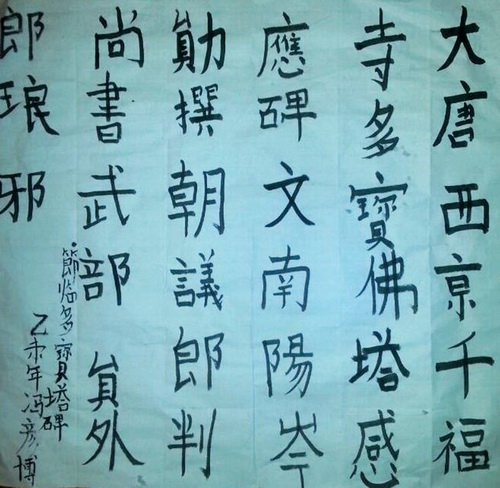 大唐西京千福
寺多寶佛塔感
應碑文南陽岑
勛撰朝議郎判
尚書武部員外
郎琅邪
節临多寶塔碑
乙未年冯彦博